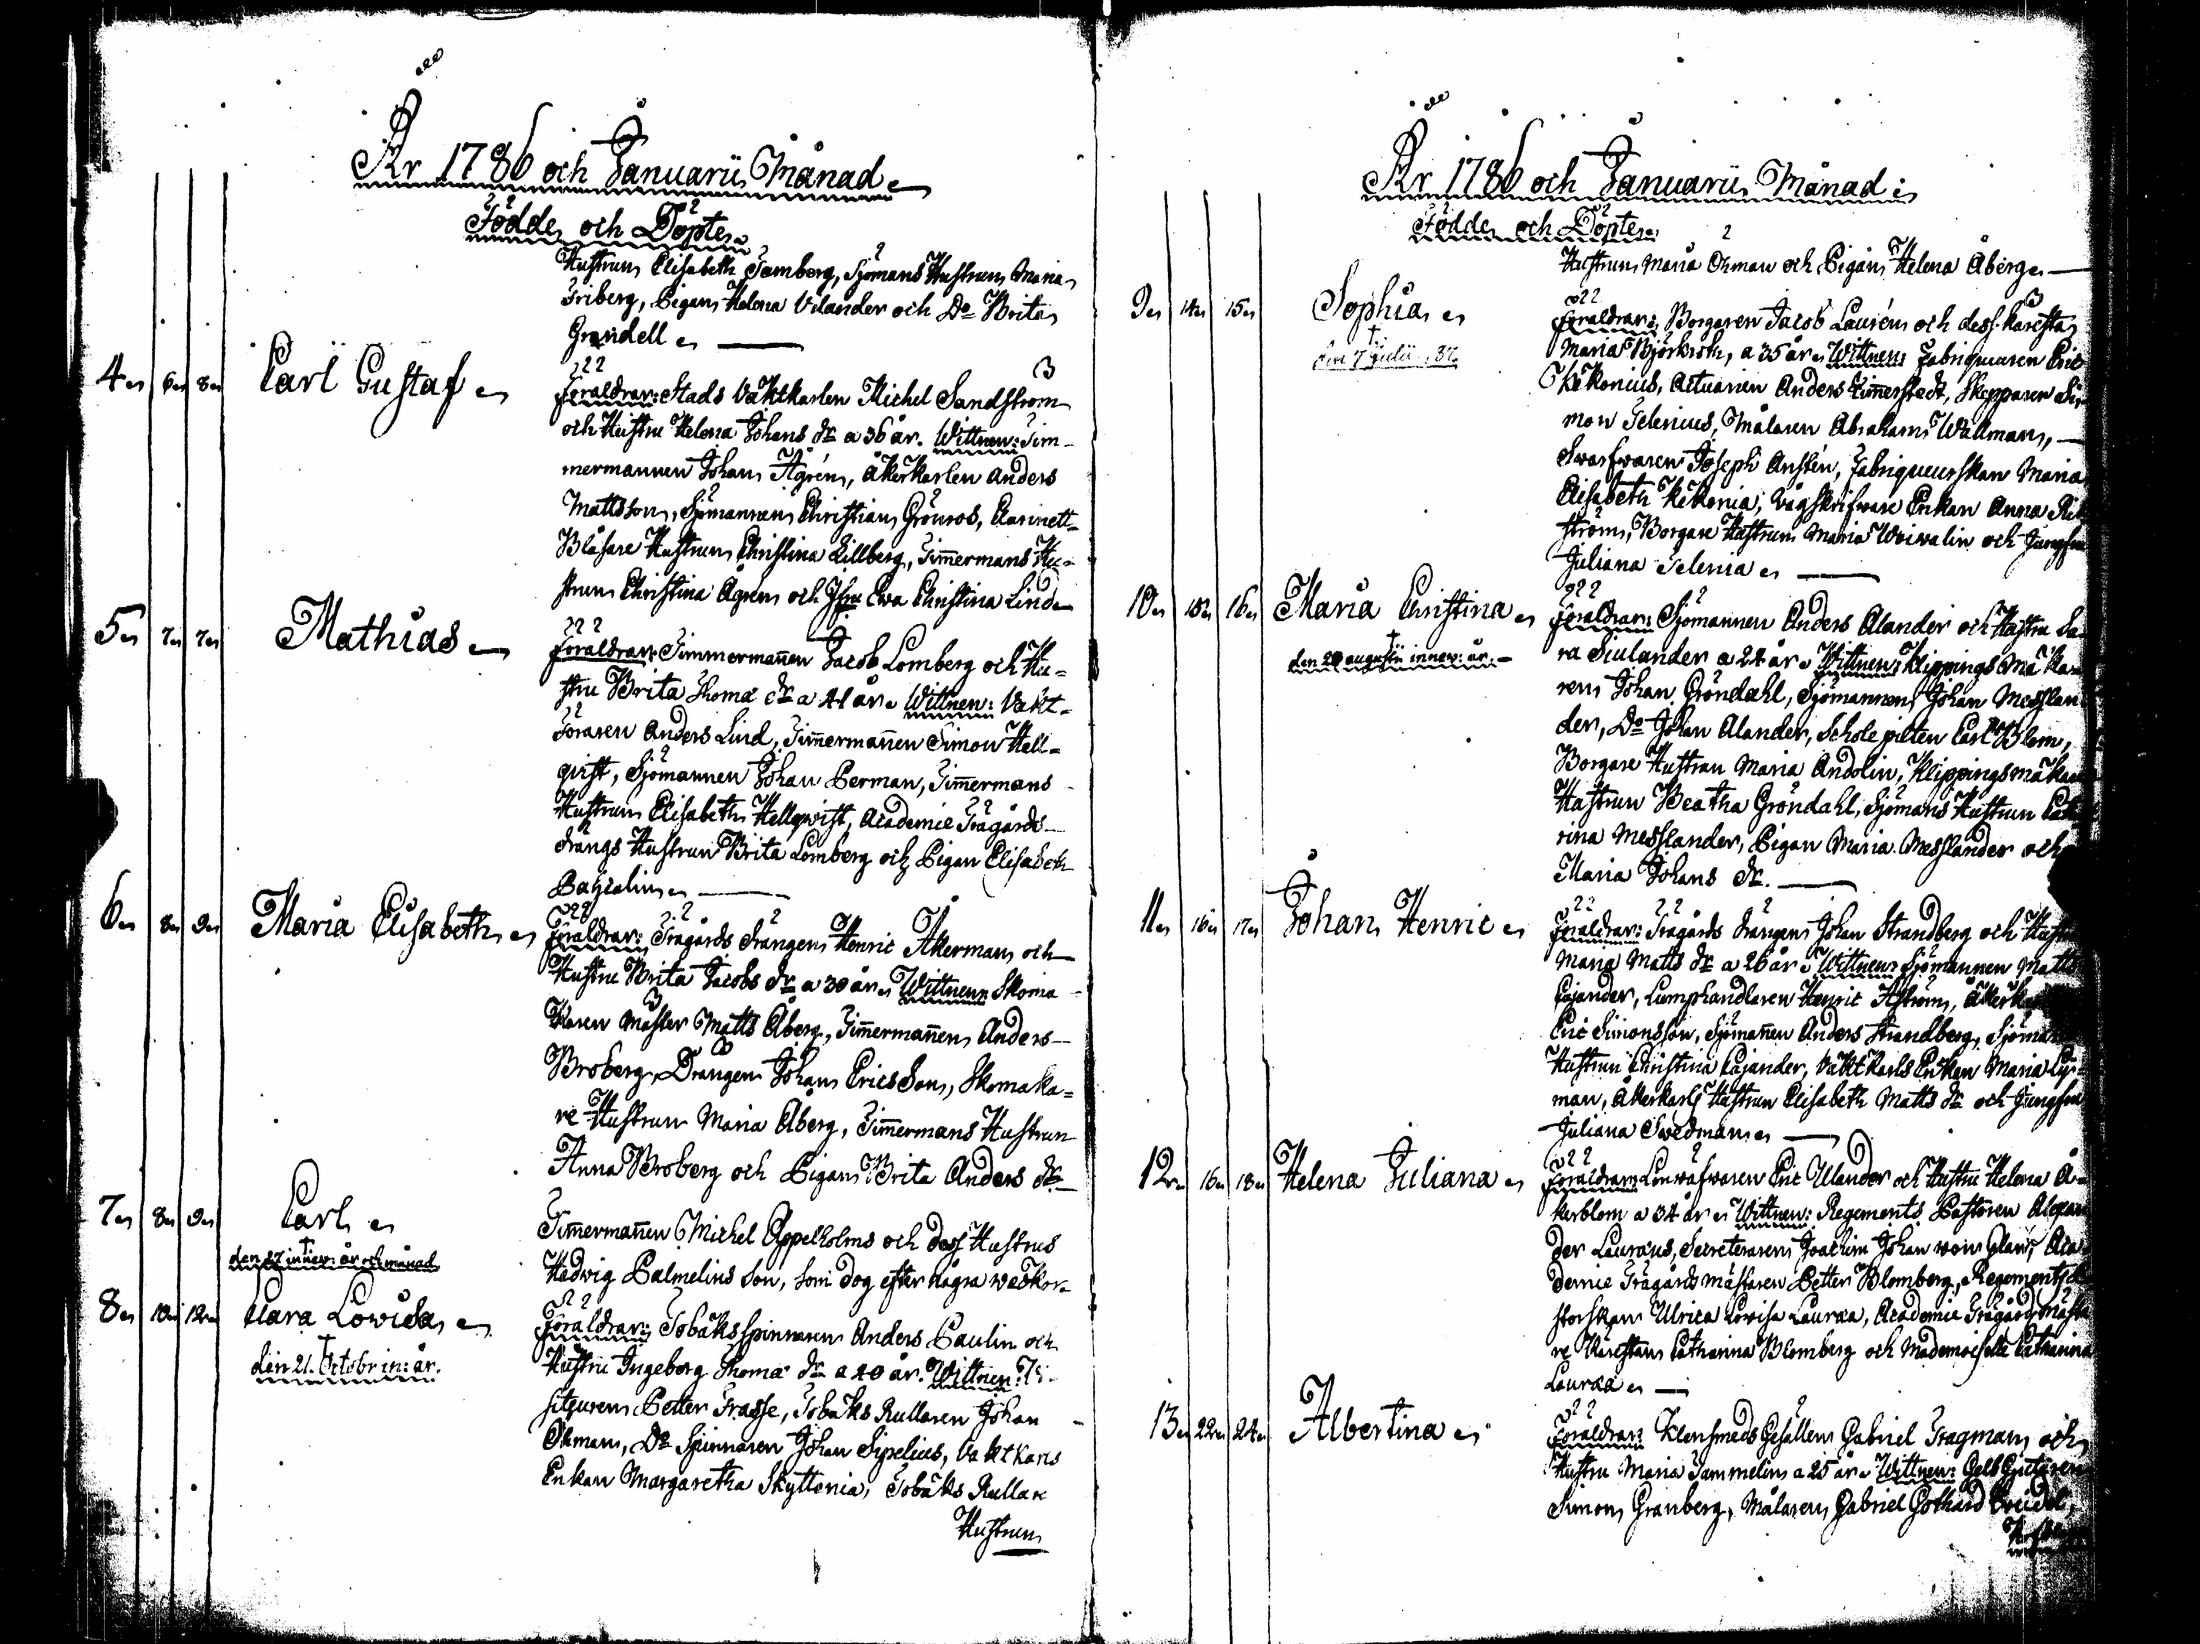 År 1786 och Januarii Månad
Födde och Döpte
Hustrun Elisabeth Tamberg, Sjömans Hustrun Maria
Friberg, Pigan Helena Velander och Do Brita
Grandell
4 6 8 Carl Gustaf Föräldrar: Stads Vaktkarlen Michel Sandström
och Hustru Helena Johans dr a 36 år. Wittnen: Tim-
mermannen Johan Ågrén, Åkerkarlen Anders
Mattsson, Sjömannen Christian Grönros, Clarinett-
Blåsare Hustrun Christina Lillberg, Timmermans Hu-
strun Christina Ågren och Jfru Ewa Christina Lind
5 7 7 Mathias Föräldrar: Timmermannen Jacob Lomberg och Hu-
stru Brita Thomæ dr a 41 år Wittnen: Vakt-
Föraren Anders Lind, Timmermannen Simon Hell-
qvist, Sjömannen Johan Berman, Timmermans
Hustrun Elisabeth Hellqwist, Academie Trägårds
drängs Hustrun Brita Lomberg och Pigan Elisabeth
6 8 9 Maria Elisabeth Föräldrar: Trägårds drängen Henric Åkerman och
Hustru Brita Jacobs dr a 30 år Wittnen: Skoma
karen Mäster Matts Åberg, Timmermannen Anders
Broberg, Drängen Johan Ericsson, Skomaka-
re Hustrun Maria Åberg, Timmermans Hustrun
Anna Broberg och Pigan Brita Anders dr
7 8 9 Carl Timmermannen Michel Appelholms och dess Hustrus
den 27 innev: år och månad
Hedwig Palmelins son, som dog efter några weckor
8 10 12 Clara Lowisa Föräldrar: Tobaksspinnaren Anders Paulin och
den 21. Octobr in: år.
Hustru Ingeborg Thomæ dr a 40 år. Wittnen:
Petter Frasse, Tobaks Rullaren Johan
Öhman, Do Spinnaren Johan Sipelius, Vaktkarls
Enkan Margaretha Skyttenia, Tobaks Rullare
Hustrun
År 1786 och Januarii Månad
Födde och Döpte
Hustrun Maria Öhman och Pigan Helena Åberg
9 14 15 Sophia Föräldrar: Borgaren Jacob Laurén och dess Käresta
den 7 Julii 87
Maria Björkroth, a 35 år Wittnen: Fabriqueuren Eric
Kekonius, Actuarien Anders Timmerstedt, Skepparen Si-
mon Telenius, Målaren Abraham Wallman,
Swarfwaren Joseph Anstén, Fabriqueurskan Maria
Elisabeth Kekonia, Vågskrifware Enkan Anna
ström, Borgare Hustrun Maria Woiwalin och Jungfru
Juliana Telenia
10 15 16 Maria Christina Föräldrar: Sjömannen Anders Alander och Hustru Sa
den 20 augustii innev: år.
ra Siulander a 24 år Wittnen: Klippings Måka-
ren Johan Gröndahl, Sjömannen Johan Messlan
der, Do Johan Alander, Schole pilten Carl Blom,
Borgare Hustrun Maria Andolin, Klippingsmåkare
Hustrun Beatha Gröndahl, Sjömans Hustrun Cath
rina Messlander, Pigan Maria Messlander och
Maria Johans dr.
11 16 17 Johan Henric Föräldrar: Trägårds drängen Johan Strandberg och Hustru
Maria Matts dr a 26 år Wittnen: Sjömannen Matts
Cajander, Lumphandlaren Henric Åström, Åkerka
Eric Simonsson, Sjömannen Anders Strandberg, Sjöma
Hustrun Christina Cajander, Vaktkarls Enkan Maria
man, Åkerkarls Hustrun Elisabeth Matts dr och Jungfru
Juliana Swedman
12 16 18 Helena Juliana Föräldrar: Linwäfwaren Eric Ulander och Hustru Helena Å-
kerblom a 34 år Wittnen: Regements Pastoren Alexan
der Lauræus, Secreteraren Joachim Johan von Glan, Aca-
demie Trägårdsmästaren Petter Blomberg, Regements
storskan Ulrica Lovisa Lauræa, Academie Trägårds Mästa
re Kärestan Catharina Blomberg och Mademoiselle Catharina
Lauræa
13 22 24 Albertina Föräldrar: Klensmeds Gesällen Gabriel Tragman och
Hustru Maria Tammelin a 25 år Wittnen: Gelbgjutaren
Simon Granberg, Målaren Gabriel Gothard